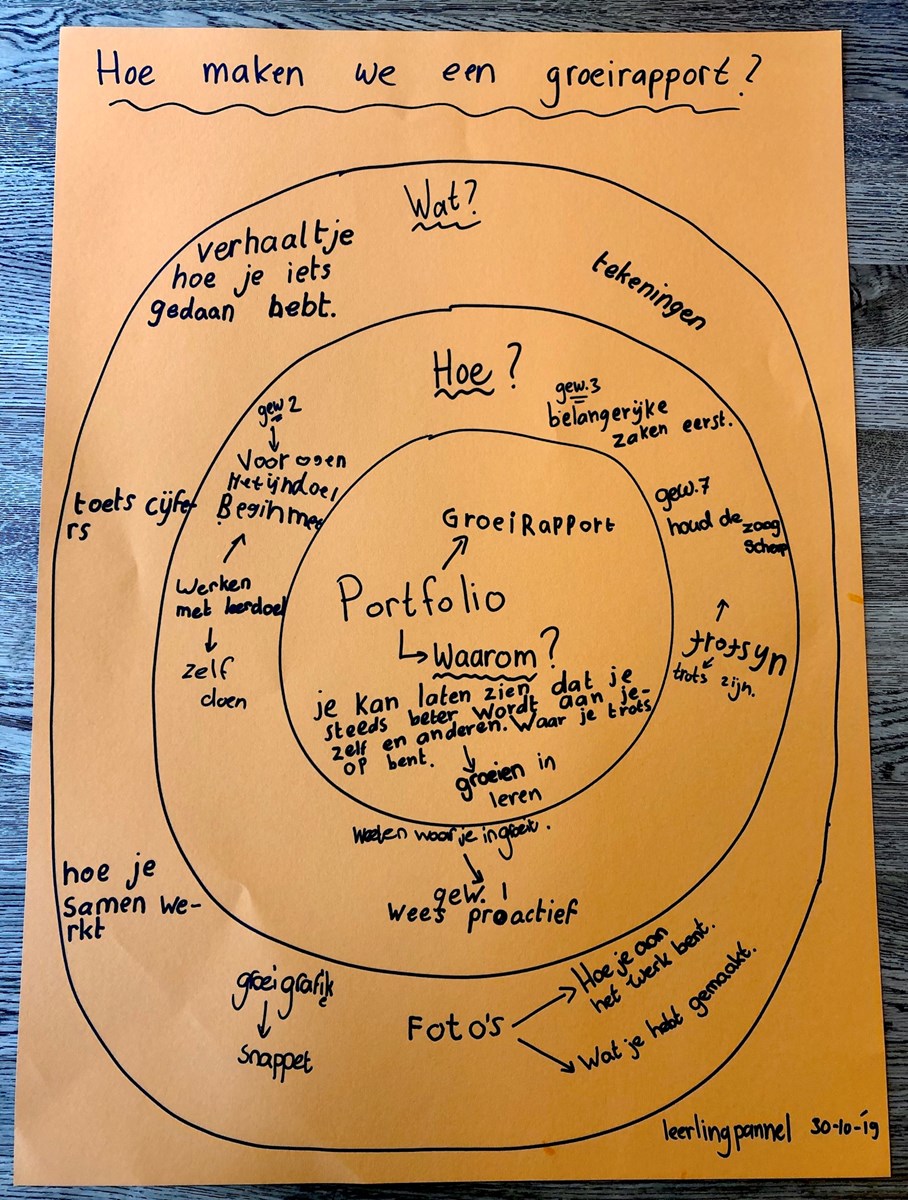 Hoe maken we een groeirapport?
Wat?
verhaaltje
hoe je iets
gedaan hebt.
tekeningen
toets cijfe-
rs
hoe je
samen we-
rkt
groeigrafik
snappet
Foto's
Hoe je aan
het werk bent.
Wat je hebt gemaakt.
Hoe?
gew 2
Voor ogen
Het ijndoel
Beginmee
Werken
met leerdoel
zelf
doen
gew.3
belangerijke
zaken eerst.
gew.7
houd de zaag
scherp
trotsyn
trots zijn.
Weeten waar je in groeit.
gew. 1
Wees proactief
GroeiRapport
Portfolio
Waarom?
je kan laten zien dat je
steeds beter wordt aan je-
zelf en anderen. Waar je trots
op bent.
groeien in
leren
leerlingpannel 30-10-'19